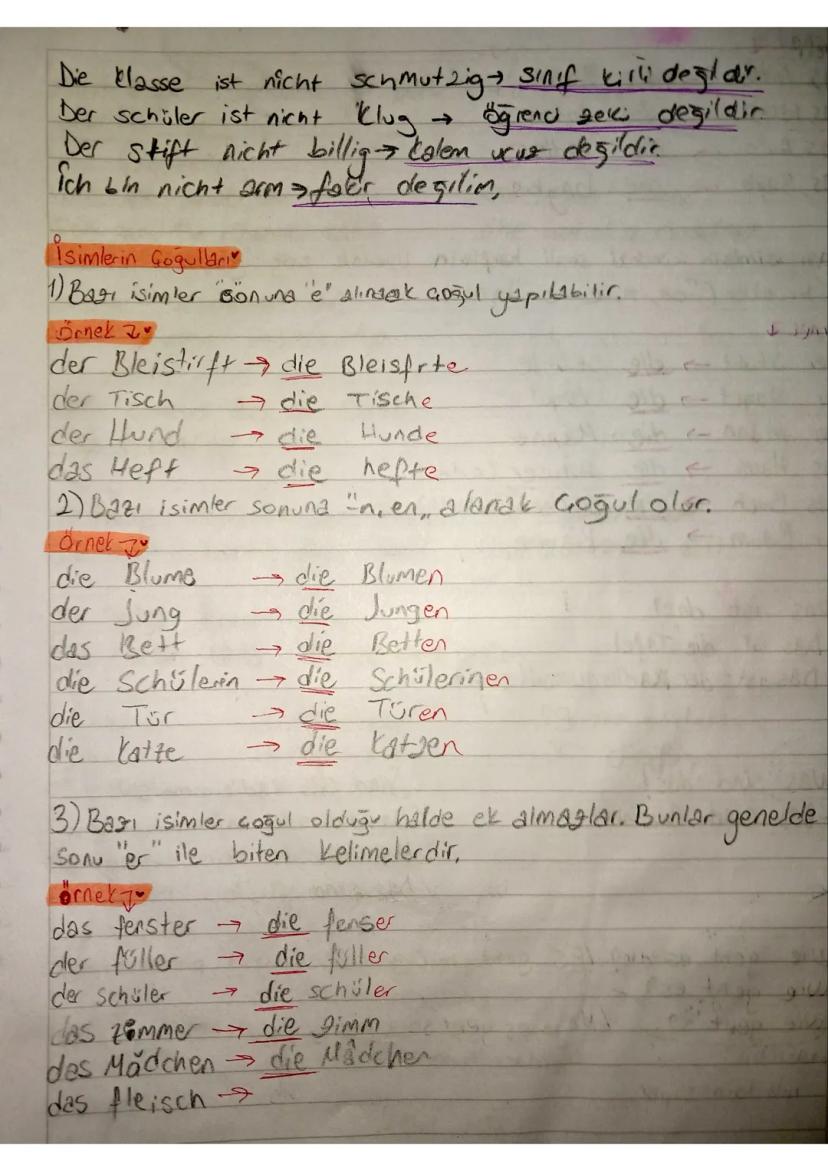 Die Klasse ist nicht schmutzig → sınıf kirli değildir.
Der schüler ist nicht klug → öğrenci zeki değildir
Der stift nicht billig → kalem ucuz değildir.
ich bin nicht arm → fakir değilim,
İsimlerin Çoğulları
1) Bazı isimler "sonuna "e" alınarak çoğul yapılabilir.
Örnek
der Bleistirft → die Bleisfrte
der Tisch → die Tische
der Hund → die Hunde
das Heft → die hefte
2) Bazı isimler sonuna "n, en,, alarak çoğul olur.
Örnek
die Blume → die Blumen
der jung → die Jungen
das Bett → die Betten
die Schülerin → die Schülerinen
die Tür → die Türen
die Katze → die Katzen
3) Bazı isimler çoğul olduğu halde ek almazlar. Bunlar genelde
sonu "er" ile biten kelimelerdir,
örnek
das fenster → die fenser
der füller → die füller
der schüler → die schüler
das zimmer → die zimm
das Mädchen → die Mädchen
das fleisch →